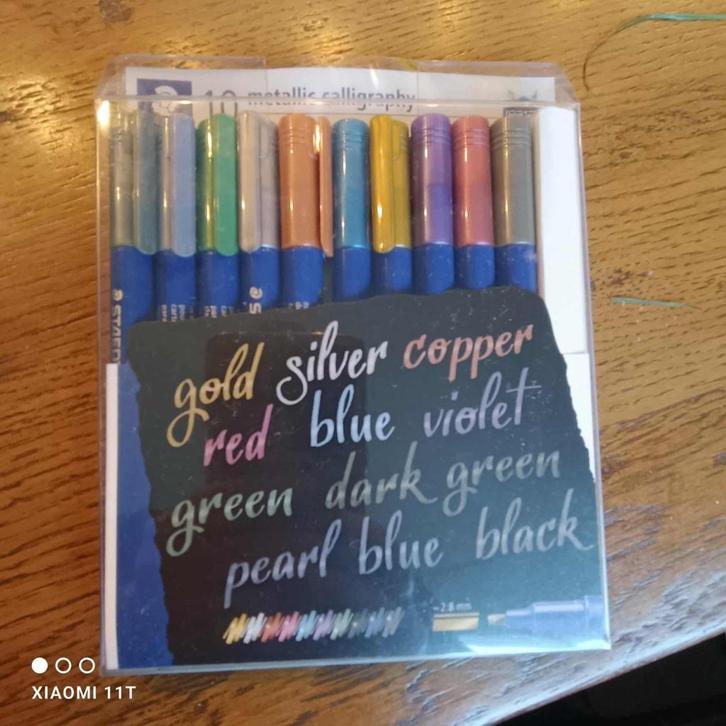 10 metallic calligraphy
gold silver copper
red blue violet
green dark green
pearl blue black
~2.8 mm
XIAOMI 11T